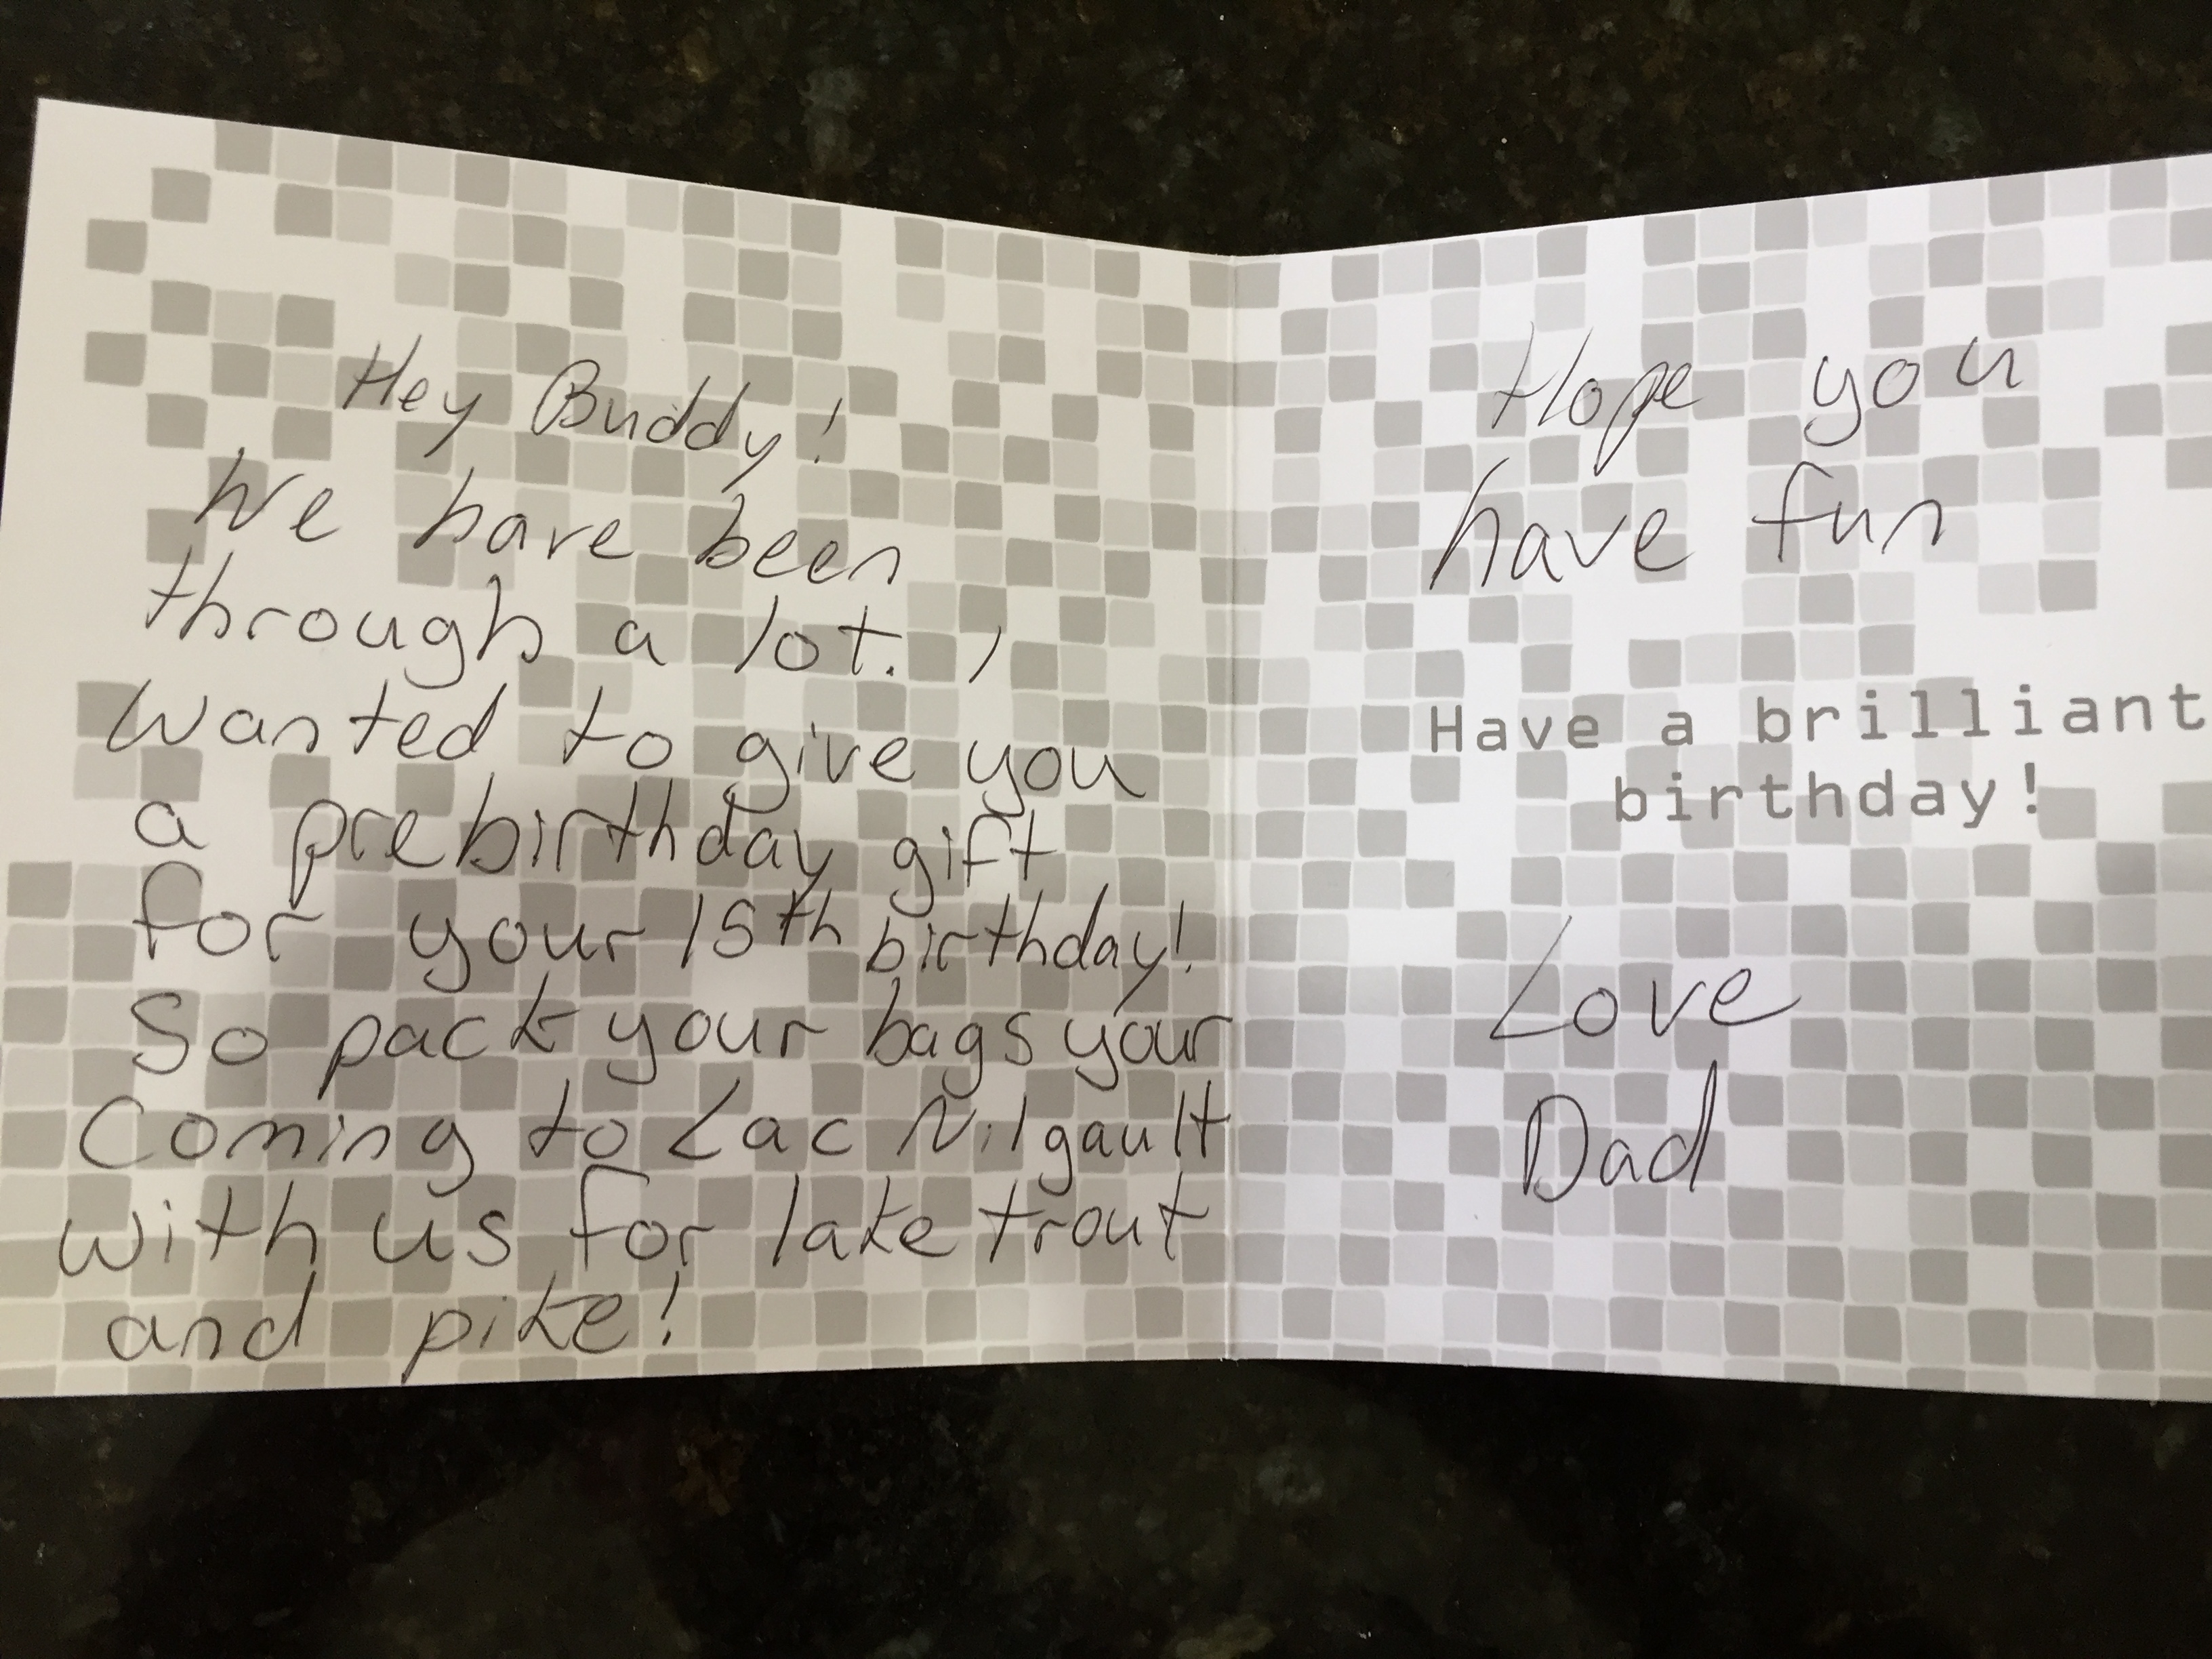 Hey Buddy!
We have been
through a lot. I
wanted to give you
a prebirthday gift
for your 15th birthday!
So pack your bags your
coming to Lac Nilgault
with us for lake trout
and pike!
Hope you
have fun
Have a brilliant
birthday!
Love
Dad